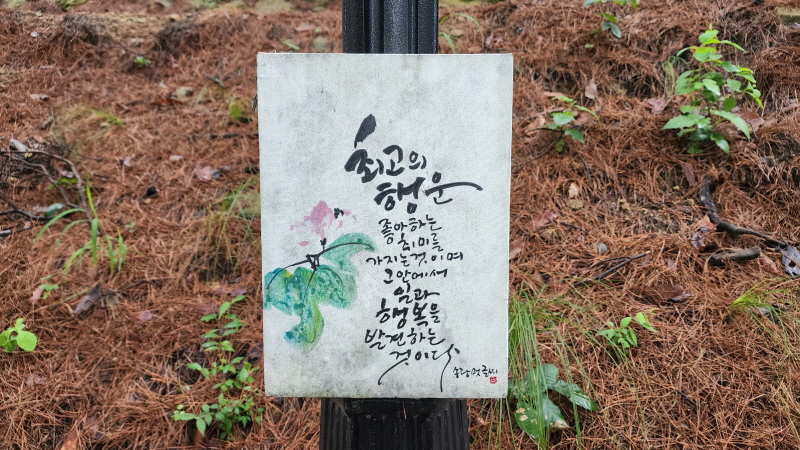 최고의
행운
좋아하는
취미를
가지는것이며
그 안에서
일과
행복을
발견하는
것이다
송랑멋글씨